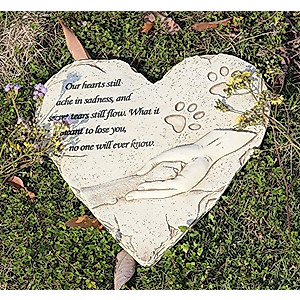 Our hearts still
ache in sadness, and
secret tears still flow. What it
meant to lose you,
no one will ever know.